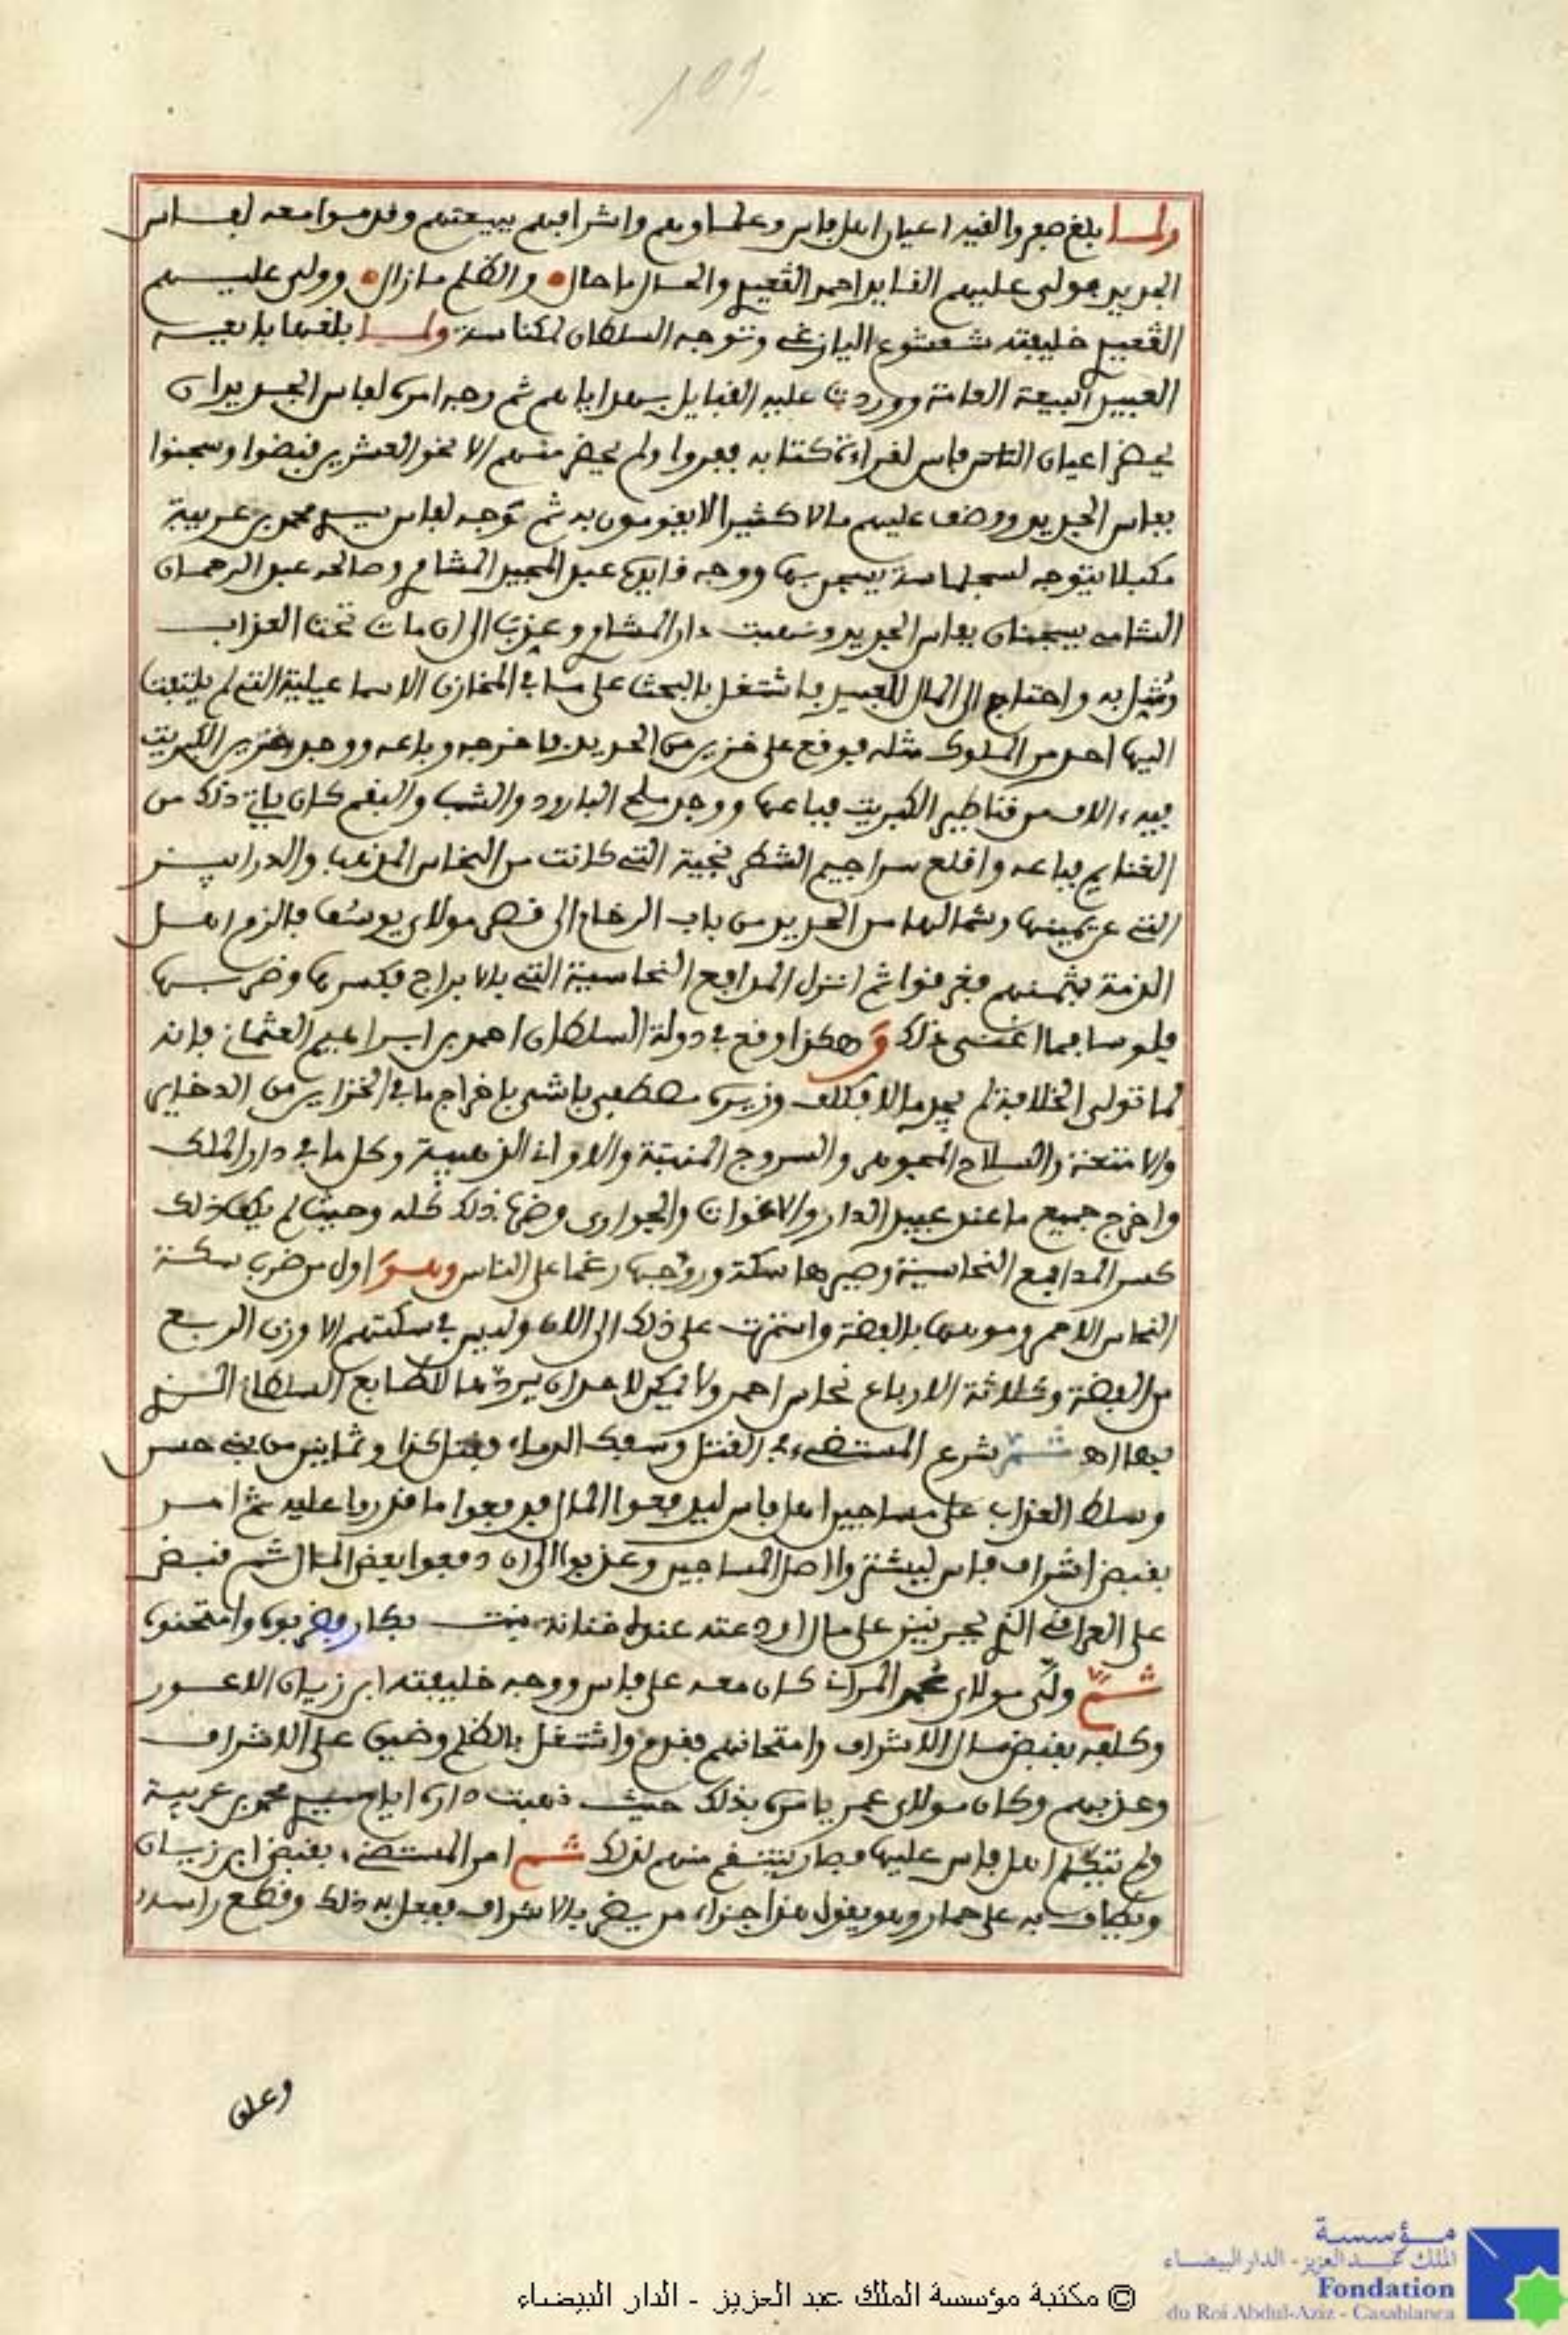 109
ولما بلغ صفرو القيه اعيان اهل فاس وعلماوهم واشرافهم ببيعتهم وقدموا معه لفاس
الجديد فولى عليهم القايد احمد الڭعيدي والحال ما حال والظلم ما زال وولى عليهم
الڭعيدي خليفته شعشوع اليازغي وتوجه السلطان لمكناسة ولما بلغها بايعه
العبيد البيعة العامة ووردت عليه القبايل بهداياهم ثم وجه امره لفاس الجديد ان
يحضر اعيان الناس فاس لقراءة كتابه ففروا ولم يحضر منهم الا نحو العشرين فقبضوا وسجنوا
بفاس الجديد ووضف عليهم مالا كثيرا لا يقومون به ثم توجه لفاس سيدي محمد بن عربية
مكبلا يتوجه لسجلماسة يسجن بها ووجه قايدها عبد المجيد المشامري وصاحبه عبد الرحمان
الشامي يسجنان بفاس الجديد ونهبت دار المشامري وعذب الى ان مات تحت العذاب
ومُثِل به واحتاج الى المال للعبيد فاشتغل بالبحث على ما في المخازن الاسماعيلية التي لم يلتفت
اليها احد من الملوك مثله فوقع على خزين من الحديد فاخرجه وباعه ووجد خزين الكبريت
فيه ءالاف من قناطير الكبريت فباعها ووجد ملح البارود والشب والبقم كان ياتي ذلك من
الغنايم فباعه واقلع سراجيم الشطرنجية التي كانت من النحاس المذهب والدرابيز
التي عن يمينها وشمالها من الحديد من باب الرخام الى قصر مولاي يوسف فالزم اهل
الذمة بثمنهم فغرموا ثم انزل المدافع النحاسية التي بالابراج فكسرها وضربها
فلوسا فما اغنى ذلك وهكذا وقع في دولة السلطان احمد بن ابراهيم العثماني فانه
لما تولى الخلافة لم يجد مالا فكلف وزيره مصطفى باشى باخراج ما في الخزاين من الدخاير
والامتعة والسلاح المجوهر والسروج المذهبة والاواني الذهبية وكل ما في دار الملك
واخرج جميع ما عند عبيد الدار والاغوات والجواري وضرب ذلك كله وحيث لم يكف ذلك
كسر المدافع النحاسية وصيرها سكة وروجها رغما على الناس وهو اول من ضرب سكة
النحاس الاحمر وموهها بالفضة واستمرت على ذلك الى الان وليس في سكتهم الا وزن الربع
من الفضة وثلاثة الارباع نحاس احمر ولا يمكن لاحد ان يردها للطابع السلطاني الذي
فيها اهـ ثم شرع المستضيء في القتل وسفك الدماء فقتل كذا وثمانين من بني حسن
وسلط العذاب على مساجين اهل فاس ليدفعوا المال فدفعوا ما قدروا عليه ثم امر
بقبض اشراف فاس ليشتروا اصل المساجين وعذبوا الى ان دفعوا بعض المال ثم قبض
على العراقي الذي بجرنيز على مال اودعته عنده خناثة بنت بكار وضربوه وامتحنوه
ثم ولى مولاي عمر المراني كان معه على فاس ووجه خليفته ابن زيان الاعور
وكلفه بقبض مال الاشراف وامتحانهم فقدم واشتغل بالظلم وضيق على الاشراف
وعذبهم وكان مولاي عمر يامره بذلك حيث نهبت داره ايام سيدي محمد بن عربية
ولم تتكلم اهل فاس عليها فصار ينتقم منهم لذلك ثم امر المستضيء بقبض ابن زيان
ويطاف به على حمار وهو يقول هذا جزاء من يضر بالاشراف ففعل به ذلك وقطع راسه
وعلق
مؤسسة
الملك عبد العزيز - الدار البيضاء
Fondation
du Roi Abdul-Aziz - Casablanca
© مكتبة مؤسسة الملك عبد العزيز - الدار البيضاء